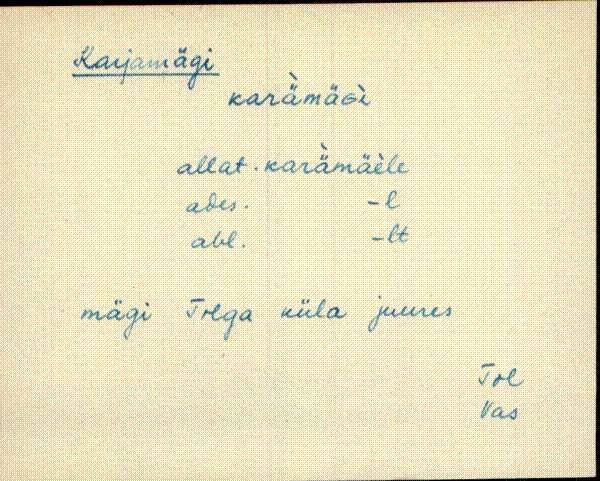 Karjamägi
karä̀mäGì
allat. karä̀mäèle
ades. -l
abl. -lt
mägi Tolga küla juures
Tol
Vas